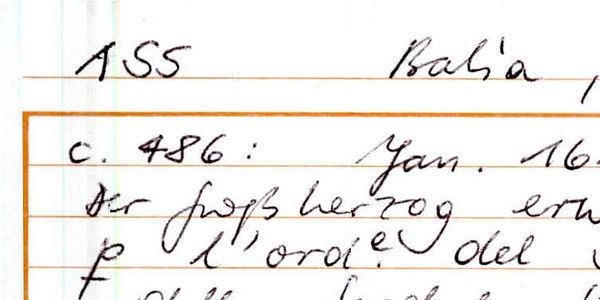 ASS Balia,
c. 486: Jan. 16.
der Großherzog erw
p l'ord.e del